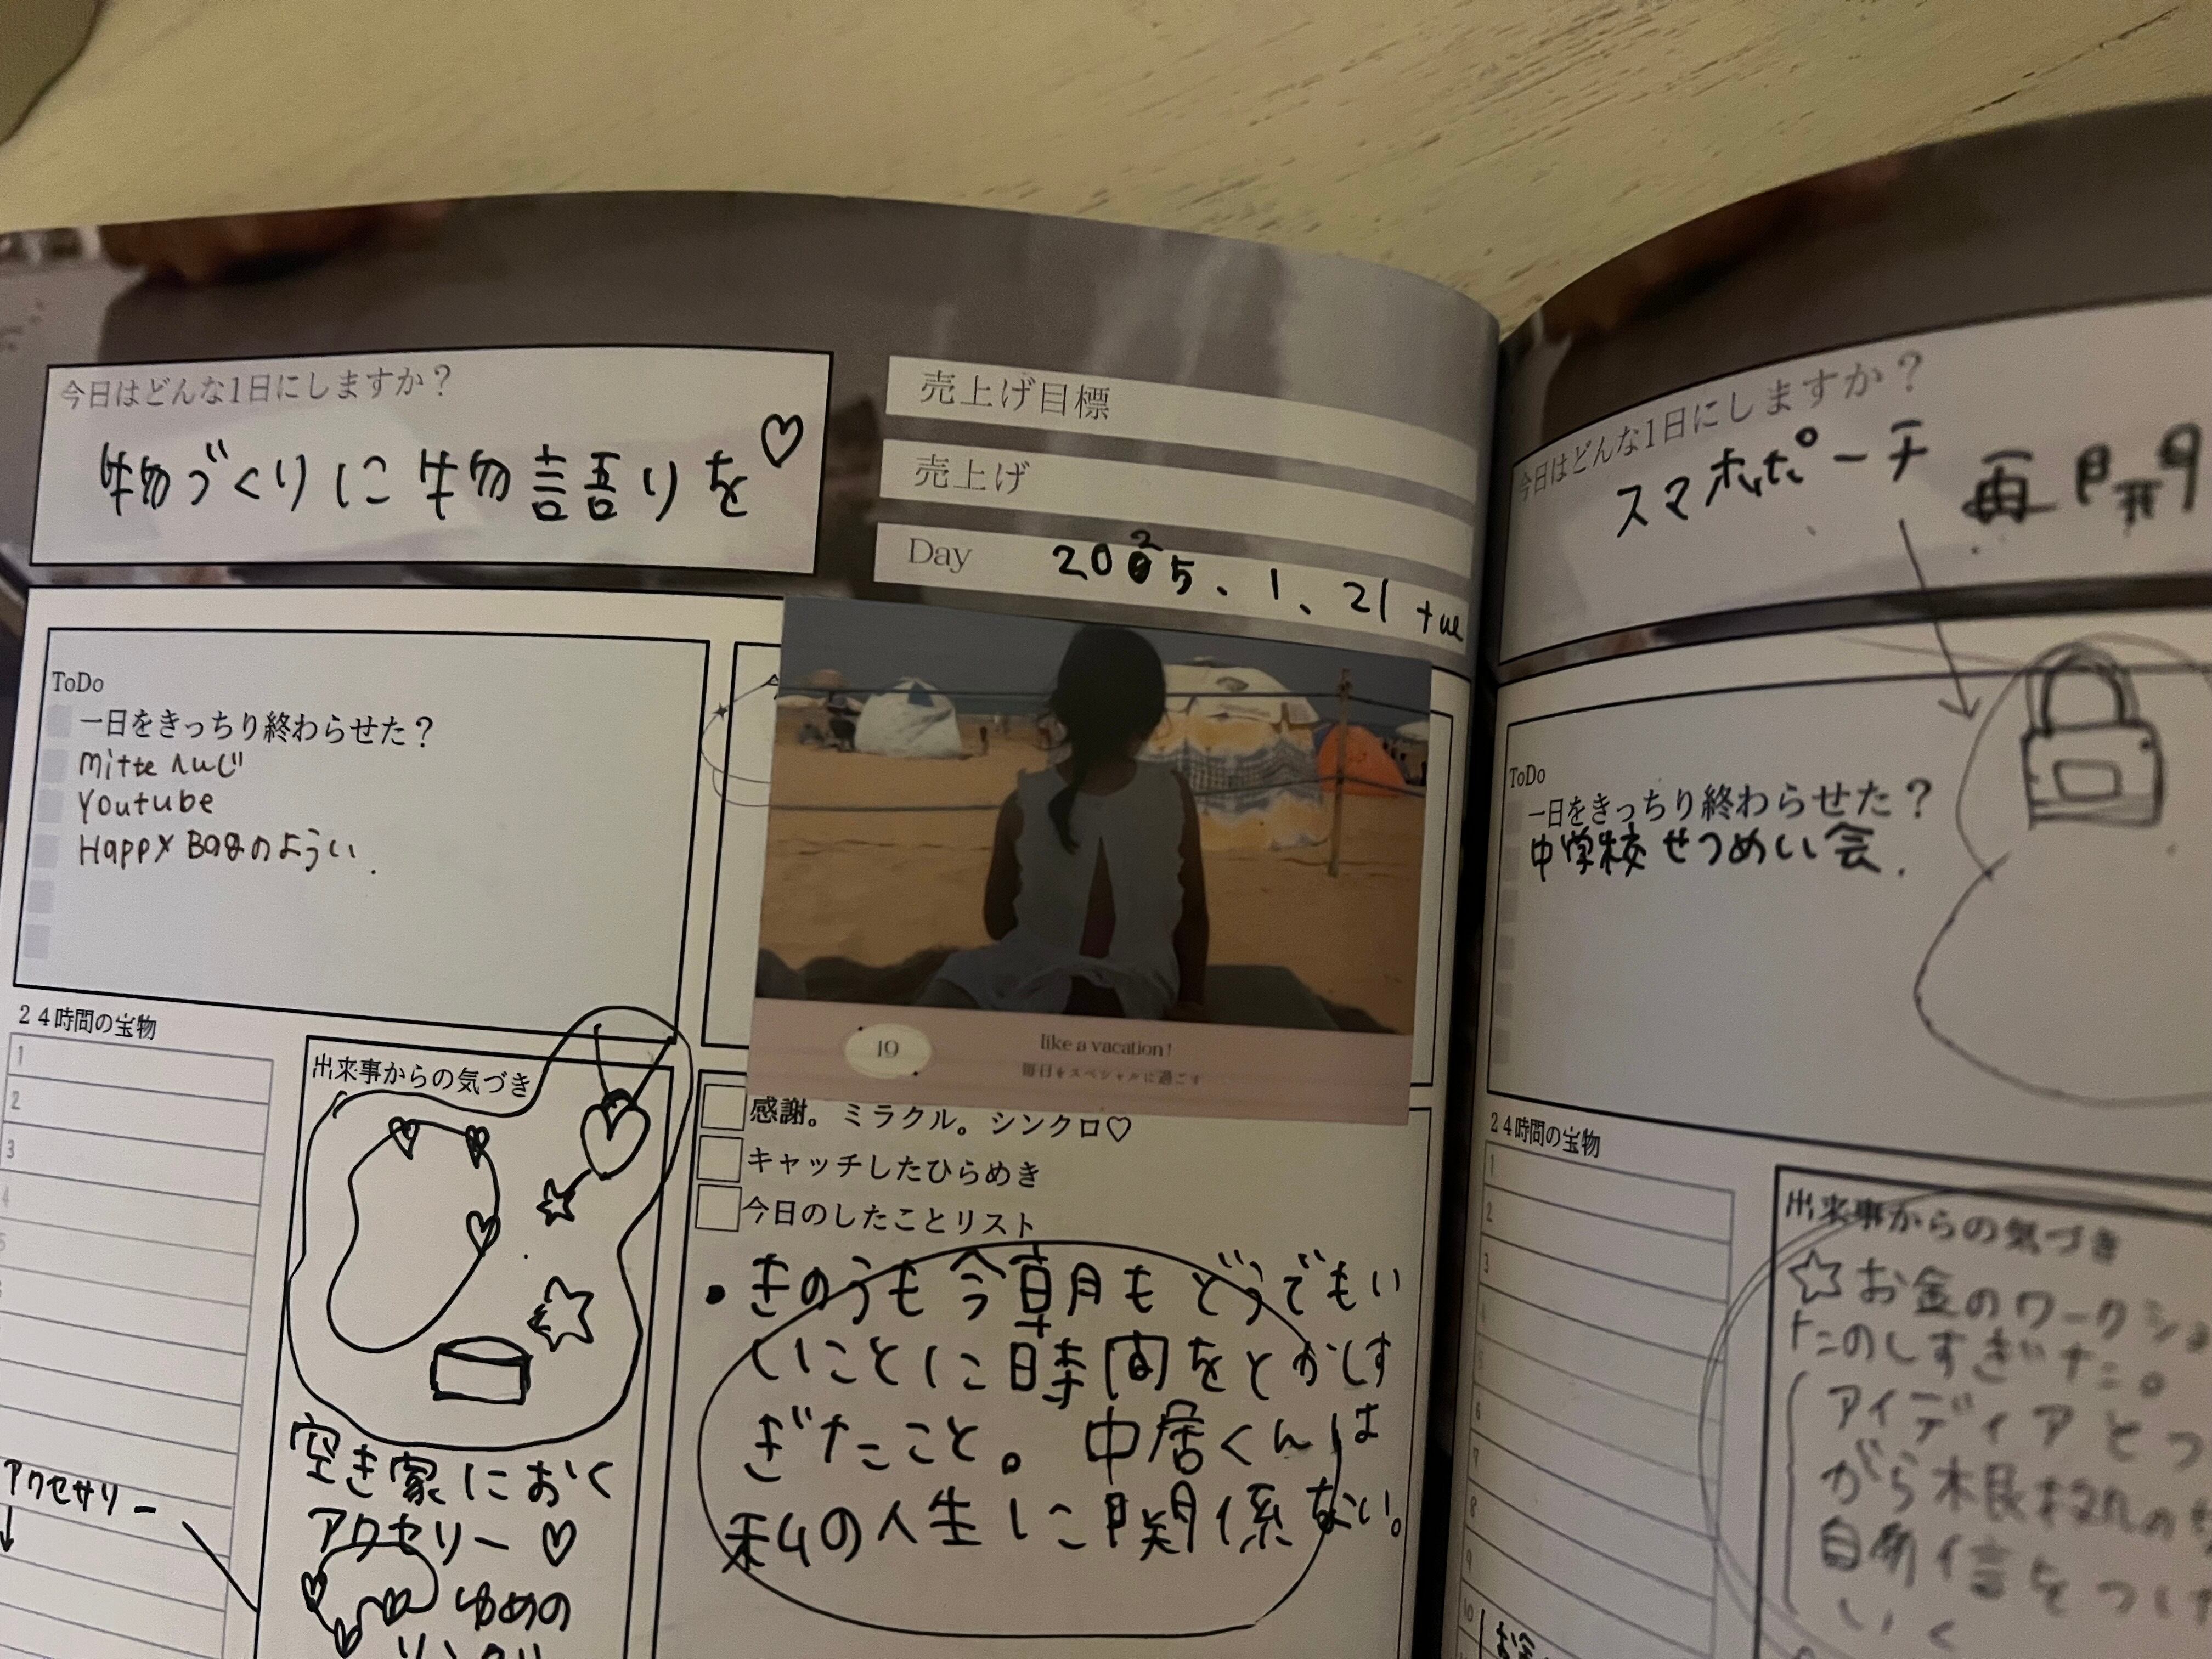 今日はどんな1日にしますか？
物づくりに物語りを♡
売上げ目標
売上げ
Day 2025.1.21 tue
ToDo
一日をきっちり終わらせた？
mitte へんじ
Youtube
Happy Bagのようい.
19
like a vacation!
毎日をスペシャルに過ごす
24時間の宝物
1
2
3
4
5
アクセサリー
出来事からの気づき
空き家におく
アクセリー♡
ゆめの
感謝。ミラクル。シンクロ♡
キャッチしたひらめき
今日のしたことリスト
・きのうも今朝もどうでもい
いことに時間をとかしす
ぎたこと。中居くんは
私の人生に関係ない。
今日はどんな1日にしますか？
スマホポーチ 再開
ToDo
一日をきっちり終わらせた？
中学校せつめい会.
24時間の宝物
1
2
3
4
5
6
7
8
9
10
出来事からの気づき
☆お金のワークショ
たのしすぎた。
アイディアとつ
がら木
自
いく